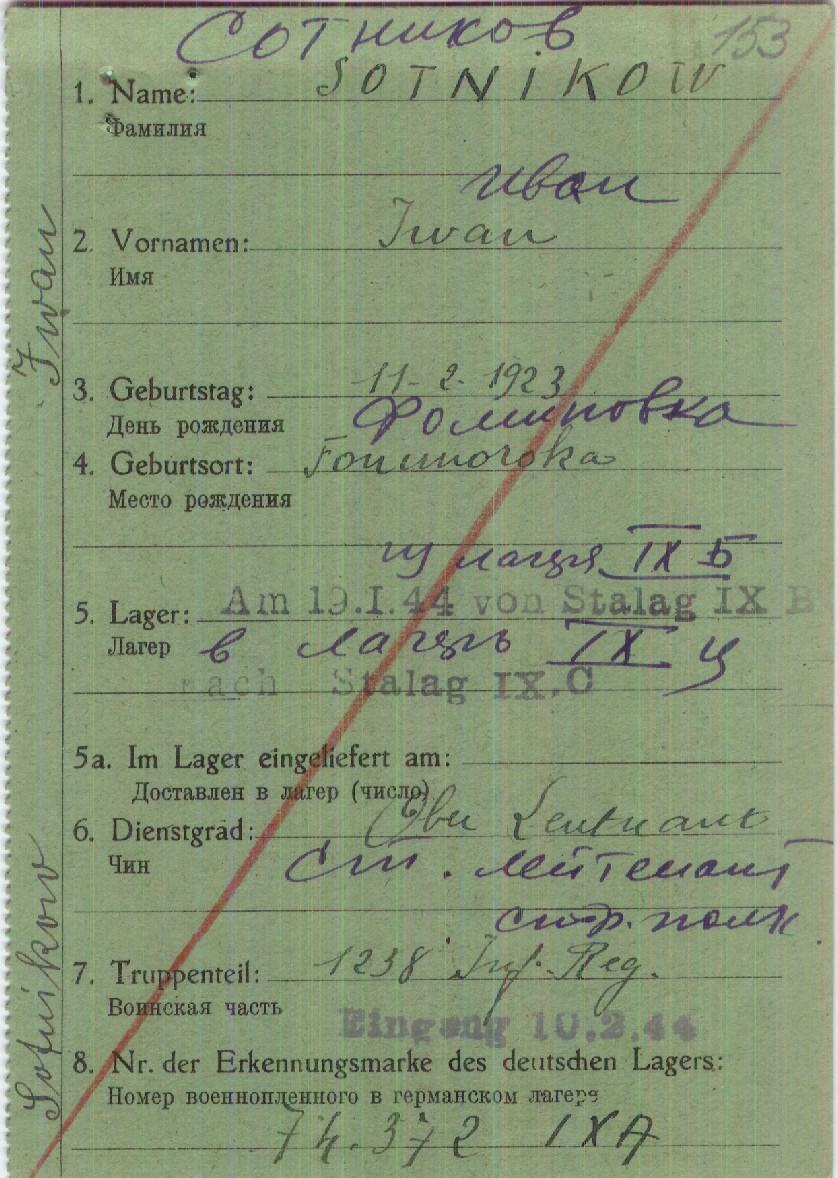 Сотников 153
1. Name: SOTNIKOW
Фамилия
Иван
2. Vornamen: Iwan
Имя
3. Geburtstag: 11. 2. 1923
День рождения Фоминовка
4. Geburtsort:
Место рождения
из лагеря IX Б
5. Lager: Am 19.I.44 von Stalag IX B
Лагер в лагерь IX Ц
nach Stalag IX.C
5a. Im Lager eingeliefert am:
Доставлен в лагер (число)
6. Dienstgrad: Ober Leutnant
Чин ст. лейтенант
стр. полк
7. Truppenteil: 1238 Inf. Reg.
Воинская часть
Eingang 10.2.44
8. Nr. der Erkennungsmarke des deutschen Lagers:
Номер военнопленного в германском лагере
74.372 IXA
Sotnikow Iwan